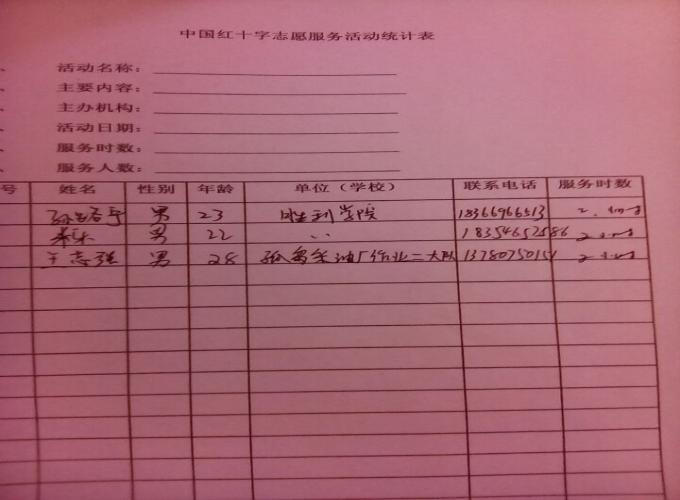 中国红十字志愿服务活动统计表
、 活动名称：
、 主要内容：
、 主办机构：
、 活动日期：
、 服务时数：
、 服务人数：
号 姓名 性别 年龄 单位（学校） 联系电话 服务时数
男 23 胜利学院 18366966513
男 22 〃 18354652586
王志强 男 28 孤岛采油厂作业二大队 13780750151